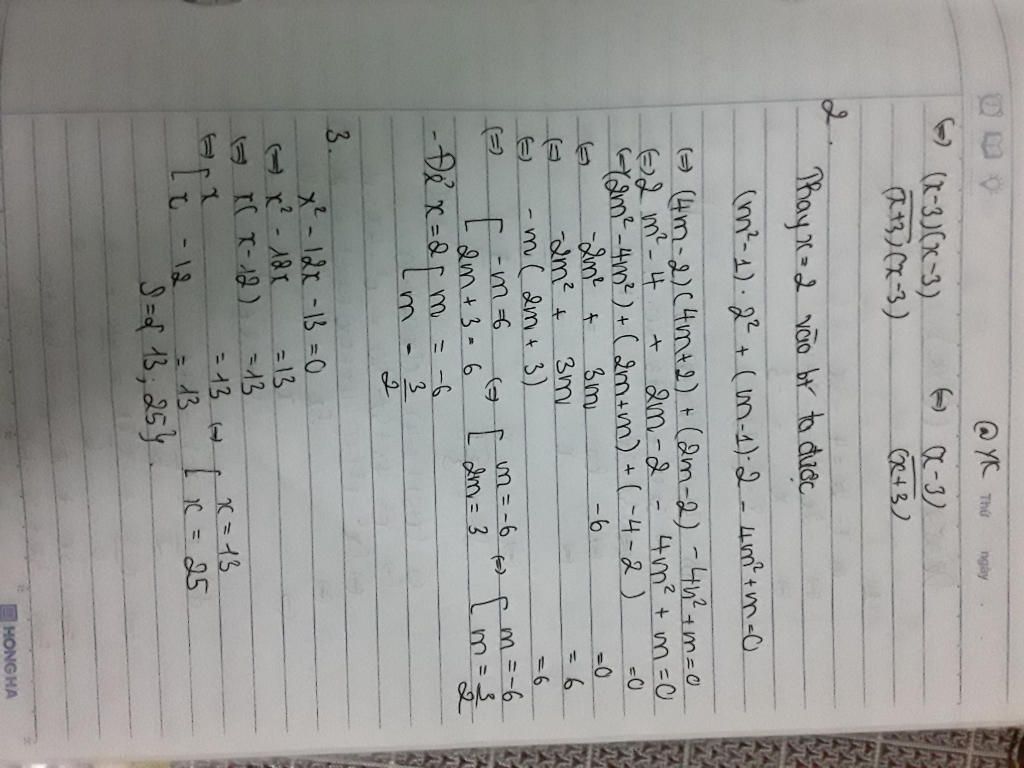 @yx Thứ ngày
(=) (x-3)(x-3) (=) (x-3)
(x+3)(x-3) (x+3)
2. Thay x = 2 vào bt ta được
(m²-1).2² + (m-1).2 - 4m²+m=0
(=) (4m-2)(4m+2) + (2m-2) - 4m²+m=0
(=) 2m²-4 + 2m-2 - 4m²+m=0
(=) (2m²-4m²)+(2m+m)+(-4-2) =0
(=) -2m² + 3m -6 =0
(=) -2m² + 3m = 6
(=) -m(2m+3) = 6
(=) [ -m=6 (=) [ m=-6 (=) [ m=-6
2m+3=6 2m=3 m=3/2
- Để x=2 [ m = -6
[ m = 3/2
3. x²-12x-13=0
(=) x²-12x =13
(=) x(x-12) =13
(=) [ x =13 (=) [ x=13
[ x-12 =13 [ x=25
S={13;25}.
HONG HA